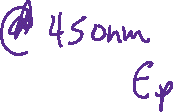 @ 450nm
Eφ